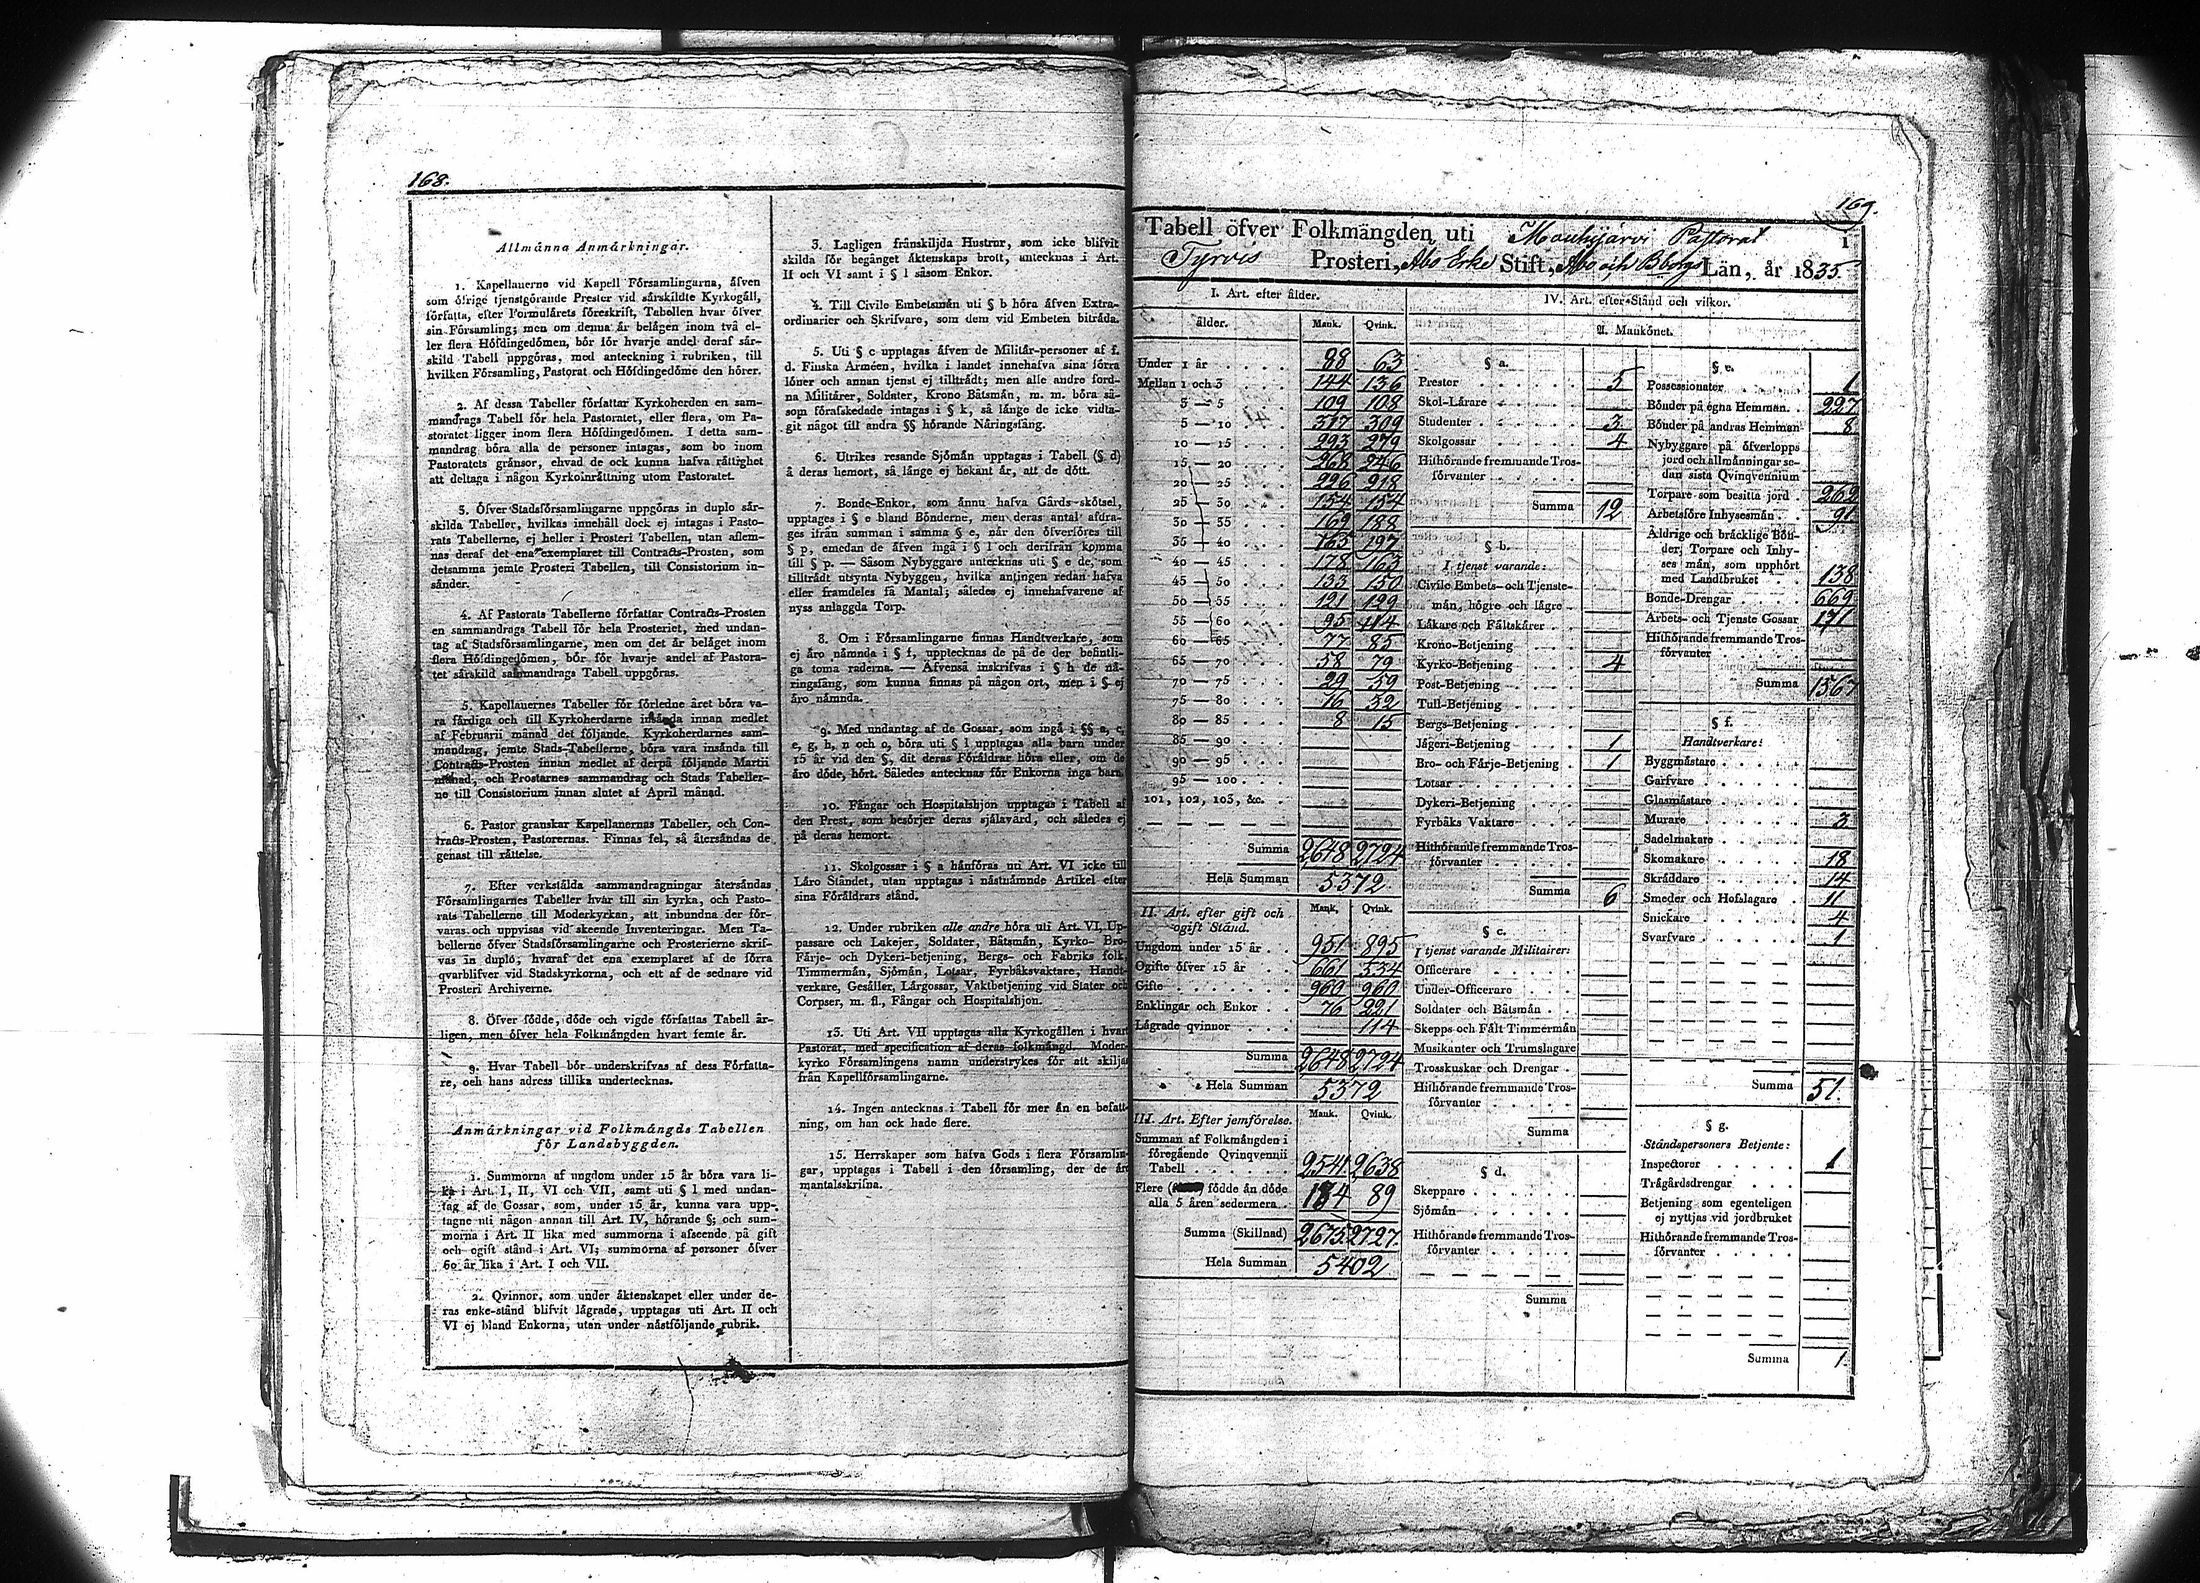 168.
Allmänna Anmärkningar.
1. Kapellanerne vid Kapell Församlingarna, äfven
som öfrige tjenstgörande Prester vid särskildte Kyrkogäll,
författa, efter Formulärets föreskrift, Tabellen hvar öfver
sin Församling; men om denna är belägen inom två el-
ler flera Höfdingedömen, bör för hvarje andel deraf sär-
skild Tabell uppgöras, med anteckning i rubriken, till
hvilken Församling, Pastorat och Höfdingedöme den hörer.
2. Af dessa Tabeller författar Kyrkoherden en sam-
mandrags Tabell för hela Pastoratet, eller flera, om Pa-
storatet ligger inom flera Höfdingedömen. I detta sam-
mandrag böra alla de personer intagas, som bo inom
Pastoratets gränsor, ehvad de ock kunna hafva rättighet
att deltaga i någon Kyrkoinrättning utom Pastoratet.
3. Öfver Stadsförsamlingarne uppgöras in duplo sär-
skilda Tabeller, hvilkas innehåll dock ej intagas i Pasto-
rats Tabellerne, ej heller i Prosteri Tabellen, utan aflem-
nas deraf det ena exemplaret till Contracts-Prosten, som
detsamma jemte Prosteri Tabellen, till Consistorium in-
sänder.
4. Af Pastorats Tabellerne författar Contracts-Prosten
en sammandrags Tabell för hela Prosteriet, med undan-
tag af Stadsförsamlingarne, men om det är beläget inom
flera Höfdingedömen, bör för hvarje andel af Pastora-
tet särskild sammandrags Tabell uppgöras.
5. Kapellanernes Tabeller för förledne året böra va-
ra färdiga och till Kyrkoherdarne insända innan medlet
af Februarii månad det följande. Kyrkoherdarnes sam-
mandrag, jemte Stads-Tabellerne, böra vara insända till
Contracts-Prosten innan medlet af derpå följande Martii
månad, och Prostarnes sammandrag och Stads Tabeller-
ne till Consistorium innan slutet af April månad.
6. Pastor granskar Kapellanernas Tabeller, och Con-
tracts-Prosten, Pastorernas. Finnas fel, så återsändas de
genast till rättelse.
7. Efter verkstälda sammandragningar återsändas
Församlingarnes Tabeller hvar till sin kyrka, och Pasto-
rats Tabellerne till Moderkyrkan, att inbundna der för-
varas och uppvisas vid skeende Inventeringar. Men Ta-
bellerne öfver Stadsförsamlingarne och Prosterierne skrif-
vas in duplo, hvaraf det ena exemplaret af de förra
qvarblifver vid Stadskyrkorna, och ett af de sednare vid
Prosteri Archiverne.
8. Öfver födde, döde och vigde författas Tabell är-
ligen, men öfver hela Folkmängden hvart femte år.
9. Hvar Tabell bör underskrifvas af dess Författa-
re, och hans adress tillika undertecknas.
Anmärkningar vid Folkmängds Tabellen
för Landsbyggden.
1. Summorna af ungdom under 15 år böra vara li-
ka i Art. I, II, VI och VII, samt uti § l med undan-
tag af de Gossar, som, under 15 år, kunna vara upp-
tagne uti någon annan till Art. IV, hörande §; och sum-
morna i Art. II lika med summorna i afseende på gift
och ogift stånd i Art. VI; summorna af personer öfver
60 år lika i Art. I och VII.
2. Qvinnor, som under äktenskapet eller under de-
ras enke-stånd blifvit lägrade, upptagas uti Art. II och
VI ej bland Enkorna, utan under nästföljande rubrik.
3. Lagligen frånskiljda Hustrur, som icke blifvit
skilda för begånget äktenskaps brott, antecknas i Art.
II och VI samt i § l såsom Enkor.
4. Till Civile Embetsmän uti § b höra äfven Extra-
ordinarier och Skrifvare, som dem vid Embeten biträda.
5. Uti § c upptagas äfven de Militär-personer af f.
d. Finska Arméen, hvilka i landet innehafva sina förra
löner och annan tjenst ej tillträdt; men alle andre ford-
na Militärer, Soldater, Krono Båtsmän, m. m. böra så-
som förafskedade intagas i § k, så länge de icke vidta-
git något till andra §§ hörande Näringsfång.
6. Utrikes resande Sjömän upptagas i Tabell (§ d)
å deras hemort, så länge ej bekant är, att de dött.
7. Bonde-Enkor, som ännu hafva Gårds-skötsel,
upptages i § e bland Bönderne, men deras antal afdra-
ges ifrån summan i samma § e, når den öfverföres till
§ p, emedan de äfven ingå i § l och derifrån komma
till § p. — Såsom Nybyggare antecknas uti § e de, som
tillträdt utsynta Nybyggen, hvilka antingen redan hafva
eller framdeles få Mantal; således ej innehafvarene af
nyss anlaggda Torp.
8. Om i Församlingarne finnas Handtverkare, som
ej äro nämnda i § f, upptecknas de på de der befintli-
ga toma raderna. — Äfvenså inskrifvas i § h de nä-
ringsfång, som kunna finnas på någon ort, men i § ej
äro nämnda.
9. Med undantag af de Gossar, som ingå i §§ a, c,
e, g, h, n och o, böra uti § l upptagas alla barn under
15 år vid den §, dit deras Föräldrar höra eller, om de
äro döde, hört. Således antecknas för Enkorna inga barn.
10. Fångar och Hospitalshjon upptagas i Tabell af
den Prest, som besörjer deras själavård, och således ej
på deras hemort.
11. Skolgossar i § a hänföras uti Art. VI icke till
Läro Ståndet, utan upptagas i nästnämnde Artikel efter
sina Föräldrars stånd.
12. Under rubriken alle andre höra uti Art. VI, Up-
passare och Lakejer, Soldater, Båtsmän, Kyrko- Bro-
Färje- och Dykeri-betjening, Bergs- och Fabriks folk,
Timmermän, Sjömän, Lotsar, Fyrbåksvaktare, Handt-
verkare, Gesäller, Lärgossar, Vaktbetjening vid Stater och
Corpser, m. fl., Fångar och Hospitalshjon.
13. Uti Art. VII upptagas alla Kyrkogällen i hvart
Pastorat, med specification af deras folkmängd. Moder-
kyrko Församlingens namn understrykes för att skilja
från Kapellförsamlingarne.
14. Ingen antecknas i Tabell för mer än en befatt-
ning, om han ock hade flere.
15. Herrskaper som hafva Gods i flera Församlin-
gar, upptagas i Tabell i den församling, der de äro
mantalsskrifna.
169.
Tabell öfver Folkmängden uti Mouhijärvi Pastorat 1
Tyrvis Prosteri, Åbo Erke Stift, Åbo och Bborgs Län, år 1835.
I. Art. efter ålder.
ålder. Mank. Qvink.
Under 1 år 88 63
Mellan 1 och 3 144 136
3 — 5 109 108
5 — 10 317 309
10 — 15 293 279
15 — 20 268 246
20 — 25 226 218
25 — 30 154 154
30 — 35 169 188
35 — 40 165 197
40 — 45 178 163
45 — 50 133 150
50 — 55 121 129
55 — 60 95 114
60 — 65 77 85
65 — 70 58 79
70 — 75 29 59
75 — 80 16 32
80 — 85 8 15
85 — 90
90 — 95
95 — 100
101, 102, 103, &c.
Summa 2648 2724
Hela Summan 5372
II. Art. efter gift och
ogift Stånd. Mank. Qvink.
Ungdom under 15 år 951 895
Ogifte öfver 15 år 661 534
Gifte 960 960
Enklingar och Enkor 76 221
Lägrade qvinnor 114
Summa 2648 2724
Hela Summan 5372
III. Art. Efter jemförelse. Mank. Qvink.
Summan af Folkmängden i
föregående Qvinqvennii
Tabell 2541 2638
Flere födde än döde
alla 5 åren sedermera 134 89
Summa (Skillnad) 2675 2727.
Hela Summan 5402
IV. Art. efter Stånd och vilkor.
A. Mankönet.
§ a.
Prester 5
Skol-Lärare
Studenter 3
Skolgossar 4
Hithörande fremmande Tros-
förvanter
Summa 12
§ b.
I tjenst varande:
Civile Embets- och Tjenste-
män, högre och lägre
Läkare och Fältskärer
Krono-Betjening
Kyrko-Betjening 4
Post-Betjening
Tull-Betjening
Bergs-Betjening
Jägeri-Betjening 1
Bro- och Färje-Betjening 1
Lotsar
Dykeri-Betjening
Fyrbåks Vaktare
Hithörande fremmande Tros-
förvanter
Summa 6
§ c.
I tjenst varande Militairer:
Officerare
Under-Officerare
Soldater och Båtsmän
Skepps och Fält Timmermän
Musikanter och Trumslagare
Trosskuskar och Drengar
Hithörande fremmande Tros-
förvanter
Summa
§ d.
Skeppare
Sjömän
Hithörande fremmande Tros-
förvanter
Summa
§ e.
Possessionater 1
Bönder på egna Hemman 227
Bönder på andras Hemman 8
Nybyggare på öfverlopps
jord och allmänningar se-
dan sista Qvinqvennium
Torpare som besitta jord 262
Arbetsföre Inhysesmän 91
Äldrige och bräcklige Bön-
der, Torpare och Inhy-
ses män, som upphört
med Landtbruket 138
Bonde-Drengar 669
Arbets- och Tjenste Gossar 171
Hithörande fremmande Tros-
förvanter
Summa 1567
§ f.
Handtverkare:
Byggmästare
Garfvare
Glasmästare
Murare 3
Sadelmakare
Skomakare 18
Skräddare 14
Smeder och Hofslagare 11
Snickare 4
Svarfvare 1
Summa 51.
§ g.
Ståndspersoners Betjente:
Inspectorer 1
Trägårdsdrengar
Betjening som egenteligen
ej nyttjas vid jordbruket
Hithörande fremmande Tros-
förvanter
Summa 1.